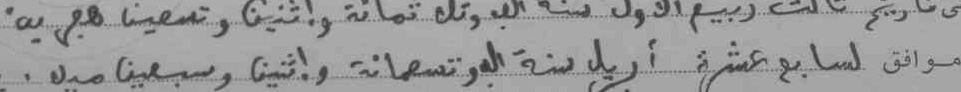 في تاريخ ثالث ربيع الاول سنة الف وتلتمائة واثنين وتسعين هجرية
موافق لسابع عشرة أبريل سنة الف وتسعمائة واثنين وسبعين ميلا